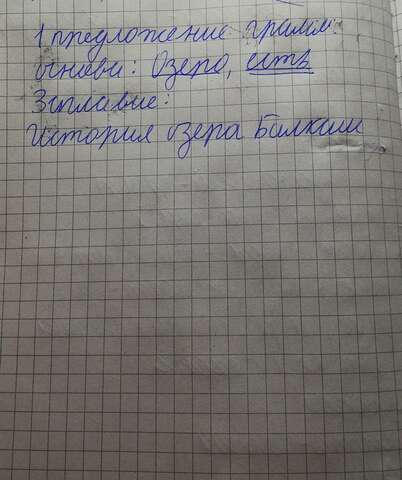 1 предложение грамм.
основа: Озеро, есть
Заглавие:
История озера Балхаш